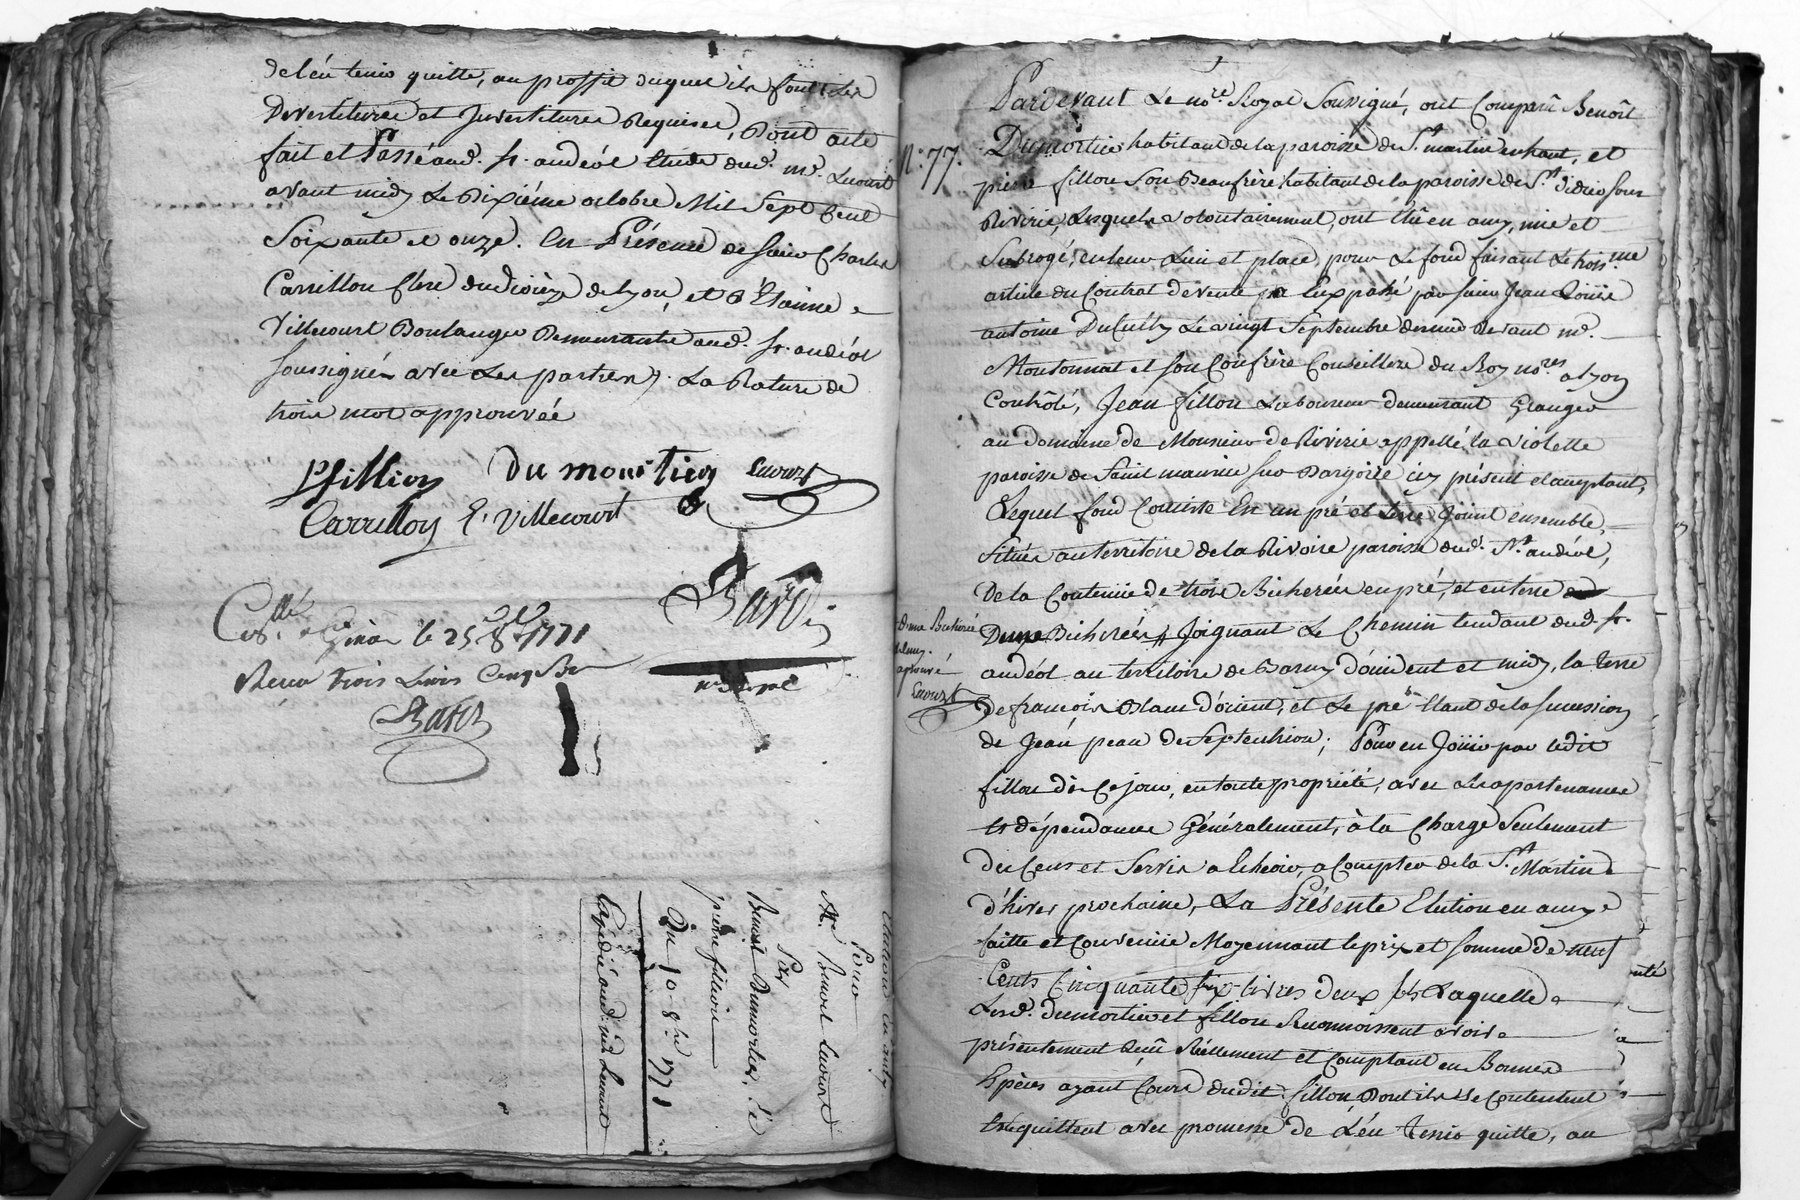 de l'en tenir quitte, au proffit duquel ils font les
Devestitures et Investitures Requises, Dont acte
fait et Passé aud. st. andéol Etude dud. me. Lucourt
avant midy Le Dixiéme octobre Mil Sept Cent
Soixante et onze. En Présence de sieur Charles
Carrillon Clerc du diocèze de Lyon, et d'Etienne
Villecourt Boulanger Demeurants aud. st. andéol
soussignés avec Les parties. La Rature de
trois mot approuvée
pfillion du mourtier Lucourt
Carrillon E. Villecourt
Conllé a Givor le 25 8bre 1771
Receu trois Livres Cinq
Nre Royal
Election en amy
Pour
Me Benoit Lucourt
Par
Benoit Dumortier, et
pierre fillion
Du 10 8bre 1771
Expedié aud. me Lucourt
n°: 77.
Pardevant Le nore. Royal Soussigné, ont Comparû Benoît
Dumortier habitant de la paroisse de St. martin en haut, et
pierre fillon Son Beaufrère habitant de la paroisse de St. didier sous
Riverie, Lesquels volontairement, ont Elû en amy, mis et
Subrogé, en leur Lieu et place, pour Le fond faisant Le troisme
article du Contrat de vente a Eux passé par sieur Jean Loüis
antoine Le vingt Septembre dernier Devant me.
Moutonnat et son Confrère Conseillers du Roy nores a Lyon
Contrôlé, Jean fillon Laboureur demeurant Granger
au domaine de Monsieur de Riverie appellé la violette
paroisse de Saint maurice sur Dargoire icy présent et acceptant,
Lequel fond Consiste En un pré et terre Joint ensemble,
Situés au territoire de la Rivoire paroisse dud. St. andéol,
De la Contenüe de trois Bicherées en pré, et en terre
Bicherées Joignant Le Chemin tendant dud. st.
andéol au territoire de Barny d'occident et midy, la terre
de francois Blanc d'orient, et Le pré Etant de la succession
de Jean peau de Septentrion; Pour en Joüir par ledit
fillon dès Ce jour, en toute propriété, avec Les apartenances
et dépendances Généralement, à la Charge Seulement
du Cens et Servis a Echeoir, a Compter de la St. Martin
d'hiver prochaine, La Présente Election en amy
faitte et Convenüe Moyennant le prix et somme de neuf
Cents Cinquante six livres deux sols Laquelle
Lesd. dumortier et fillon Reconnoissent avoir
présentement Reçû Réellement et Comptant en Bonnes
Espèces ayant Cours dudit fillon, Dont ils se Contentent
Et quittent avec promesse de L'en Tenir quitte, au
Bicherée
aprouvé
Lucourt